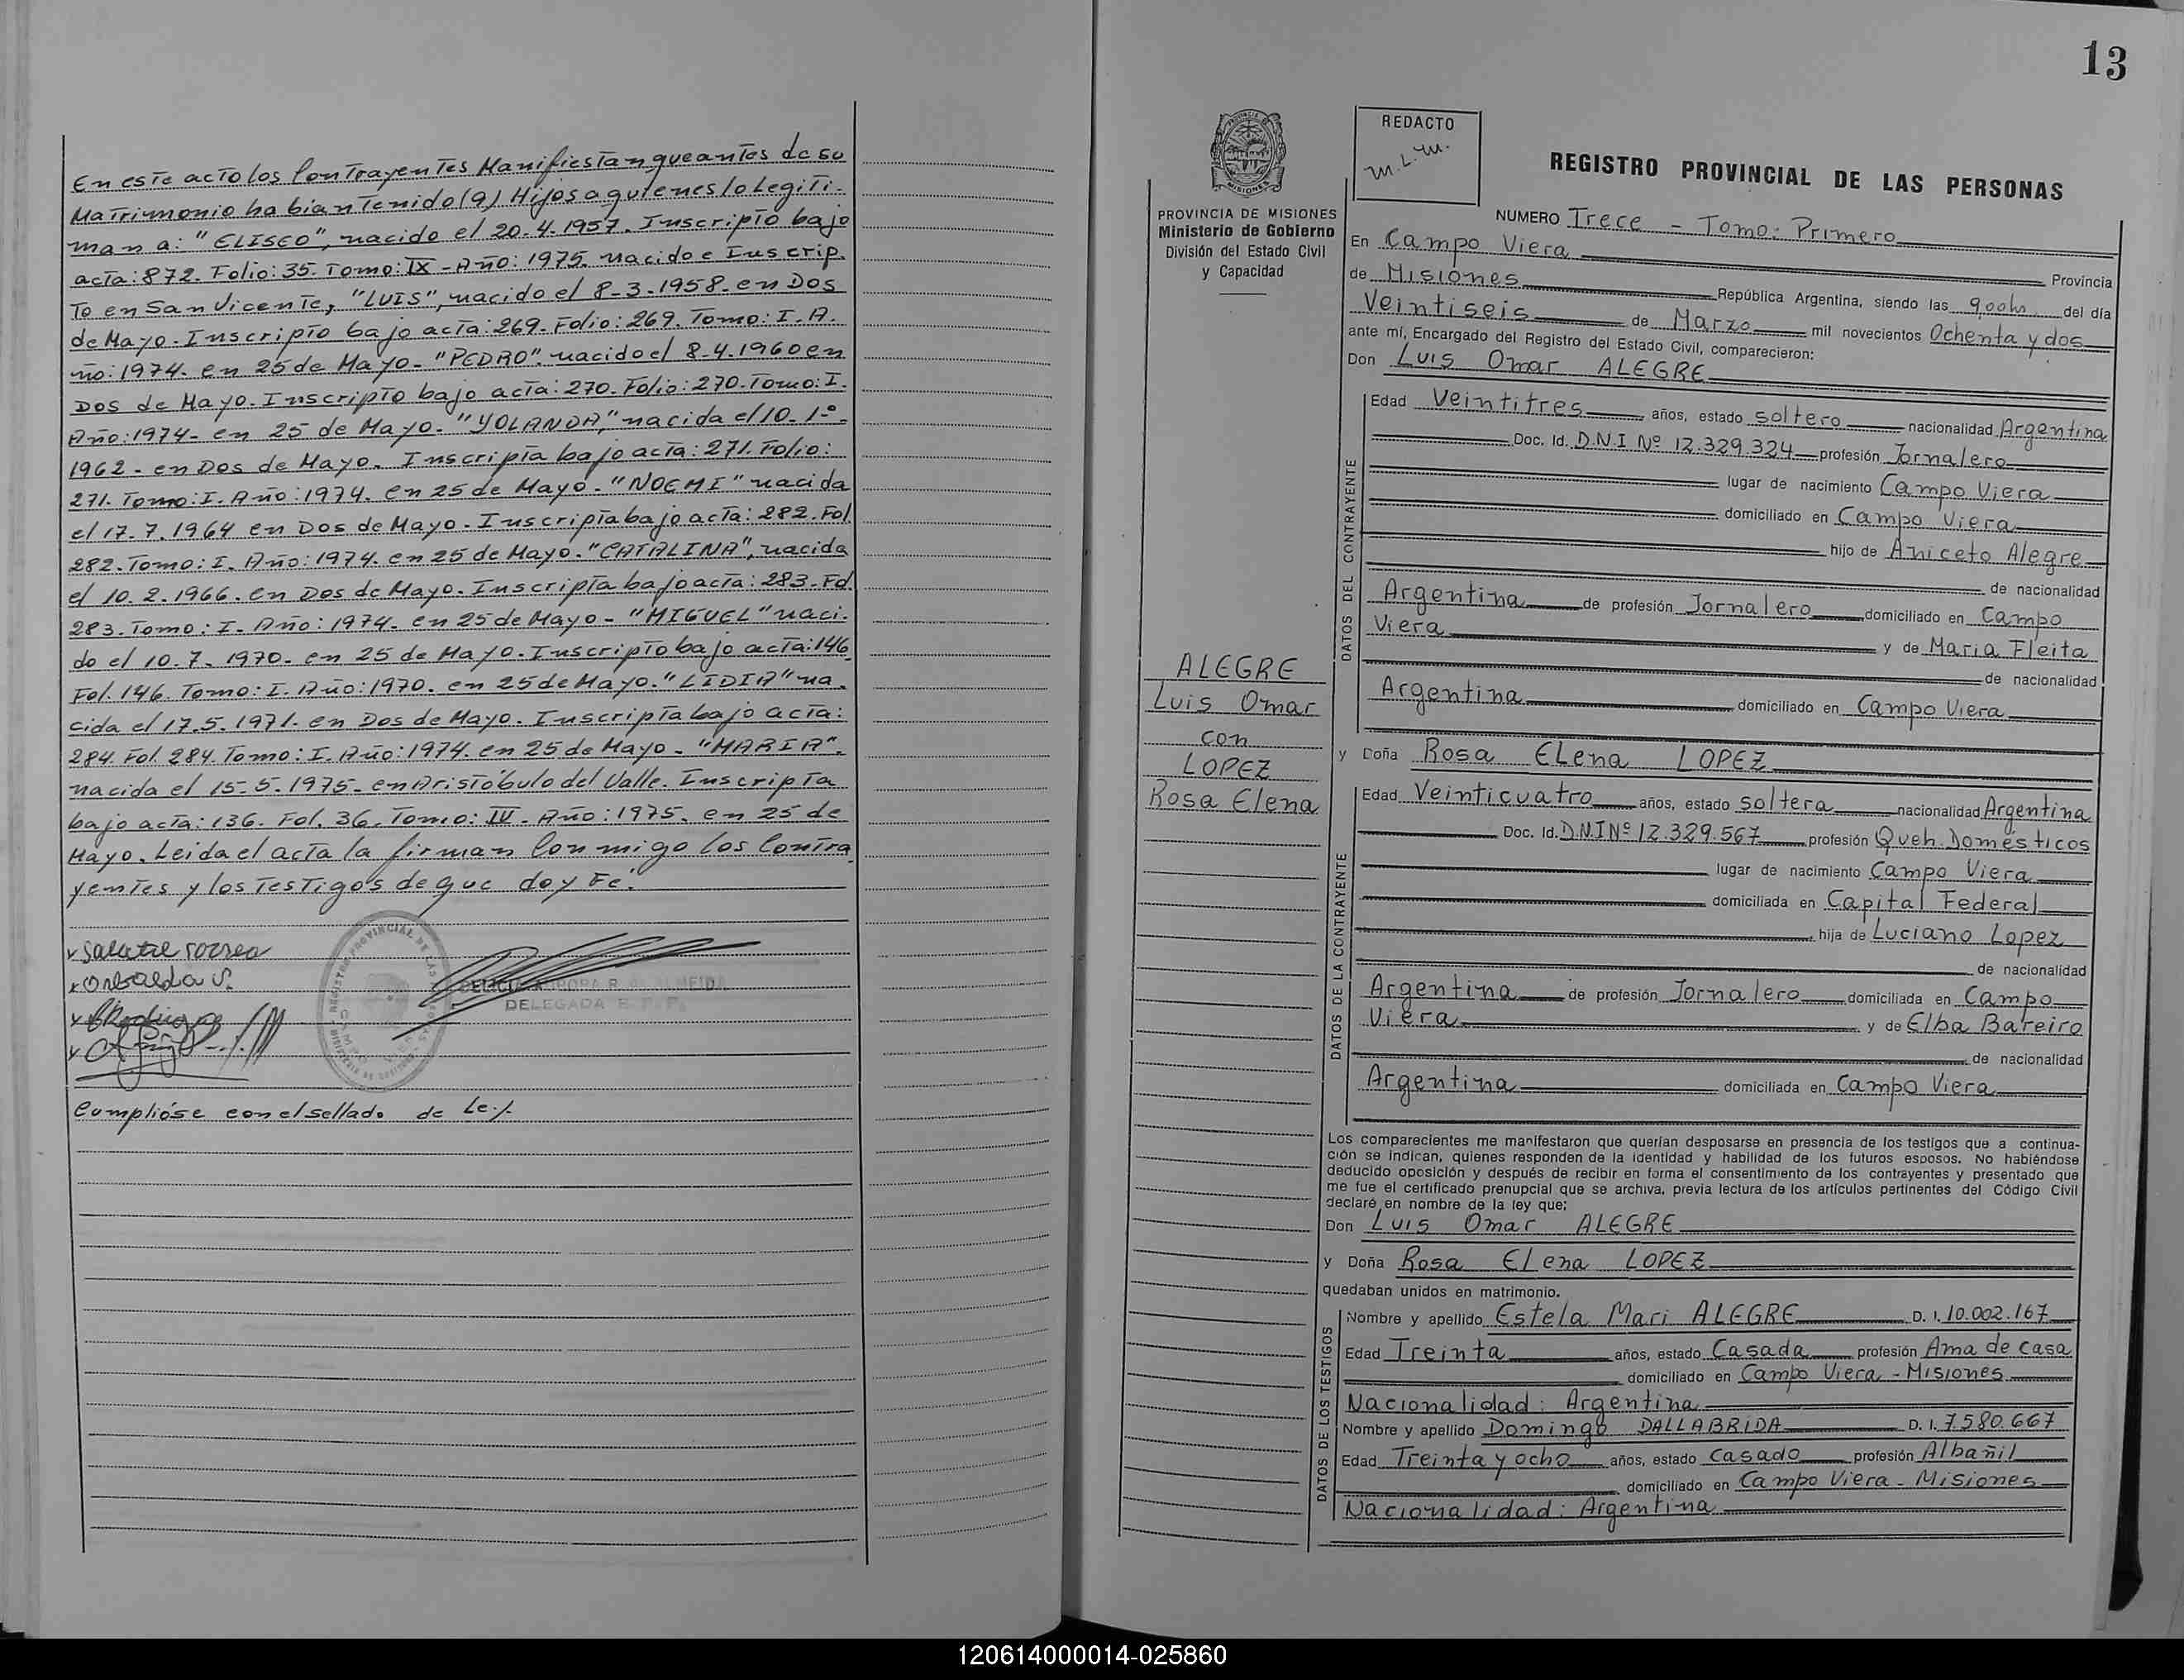 En este acto los Contrayentes Manifiestan que antes de su
Matrimonio habían tenido (9) Hijos a quienes lo Legiti-
man a: "ELISEO", nacido el 20.4.1957. Inscripto bajo
acta: 872. Folio: 35. Tomo: IX - Año: 1975. nacido e Inscrip.
to en San Vicente, "LUIS", nacido el 8-3-1958. en Dos
de Mayo. Inscripto bajo acta: 269. Folio: 269. Tomo: I. A.
ño: 1974. en 25 de Mayo. "PEDRO". nacido el 8-4.1960 en
Dos de Mayo. Inscripto bajo acta: 270. Folio: 270. Tomo: I.
Año: 1974- en 25 de Mayo. "YOLANDA", nacida el 10. 1º-
1962 - en Dos de Mayo. Inscripta bajo acta: 271. Folio:
271. Tomo: I. Año: 1974. en 25 de Mayo. "NOEMI" nacida
el 17. 7. 1964 en Dos de Mayo. Inscripta bajo acta: 282. Fol.
282. Tomo: I. Año: 1974. en 25 de Mayo. "CATALINA", nacida
el 10. 2. 1966. en Dos de Mayo. Inscripta bajo acta: 283. Fol.
283. Tomo: I. Año: 1974. en 25 de Mayo - "MIGUEL" naci.
do el 10. 7. 1970. en 25 de Mayo. Inscripto bajo acta: 146.
Fol. 146. Tomo: I. Año: 1970. en 25 de Mayo. "LIDIA" na.
cida el 17. 5. 1971. en Dos de Mayo. Inscripta bajo acta:
284. Fol. 284. Tomo: I. Año: 1974. en 25 de Mayo - "MARIA".
nacida el 15-5.1975- en Aristóbulo del Valle. Inscripta
bajo acta: 136. Fol. 36. Tomo: III - Año: 1975. en 25 de
Mayo. Leida el acta la firman Conmigo los Contra
yentes y los testigos de que doy Fé.
DELEGADA
Cumplióse con el sellado de Ley.
13
REDACTO
m.L.m.
REGISTRO PROVINCIAL DE LAS PERSONAS
PROVINCIA DE MISIONES
Ministerio de Gobierno
División del Estado Civil
y Capacidad
NUMERO Trece - Tomo: Primero
En Campo Viera Provincia
de Misiones República Argentina, siendo las 9,00hs del día
Veintiseis de Marzo mil novecientos Ochenta y dos
ante mí, Encargado del Registro del Estado Civil, comparecieron:
Don Luis Omar ALEGRE
DATOS DEL CONTRAYENTE
Edad Veintitres años, estado soltero nacionalidad Argentina
Doc. Id. D.N.I Nº 12.329.324 profesión Jornalero
lugar de nacimiento Campo Viera
domiciliado en Campo Viera
hijo de Aniceto Alegre
de nacionalidad
Argentina de profesión Jornalero domiciliado en Campo
Viera y de Maria Fleita
de nacionalidad
Argentina domiciliado en Campo Viera
ALEGRE
Luis Omar
con
LOPEZ
Rosa Elena
y Doña Rosa ELena LOPEZ
DATOS DE LA CONTRAYENTE
Edad Veinticuatro años, estado soltera nacionalidad Argentina
Doc. Id. D.N.I Nº 12.329.567 profesión Queh. Domésticos
lugar de nacimiento Campo Viera
domiciliada en Capital Federal
hija de Luciano Lopez
de nacionalidad
Argentina de profesión Jornalero domiciliada en Campo
Viera y de Elba Bareiro
de nacionalidad
Argentina domiciliada en Campo Viera
Los comparecientes me manifestaron que querían desposarse en presencia de los testigos que a continua-
ción se indican, quienes responden de la identidad y habilidad de los futuros esposos. No habiéndose
deducido oposición y después de recibir en forma el consentimiento de los contrayentes y presentado que
me fue el certificado prenupcial que se archiva, previa lectura de los artículos pertinentes del Código Civil
declaré en nombre de la ley que:
Don Luis Omar ALEGRE
y Doña Rosa ELena LOPEZ
quedaban unidos en matrimonio.
DATOS DE LOS TESTIGOS
Nombre y apellido Estela Mari ALEGRE D. I. 10.002.167
Edad Treinta años, estado Casada profesión Ama de casa
domiciliado en Campo Viera - Misiones
Nacionalidad: Argentina
Nombre y apellido Domingo DALLABRIDA D. I. 7.580.667
Edad Treinta y ocho años, estado casado profesión Albañil
domiciliado en Campo Viera - Misiones
Nacionalidad: Argentina
120614000014-025860